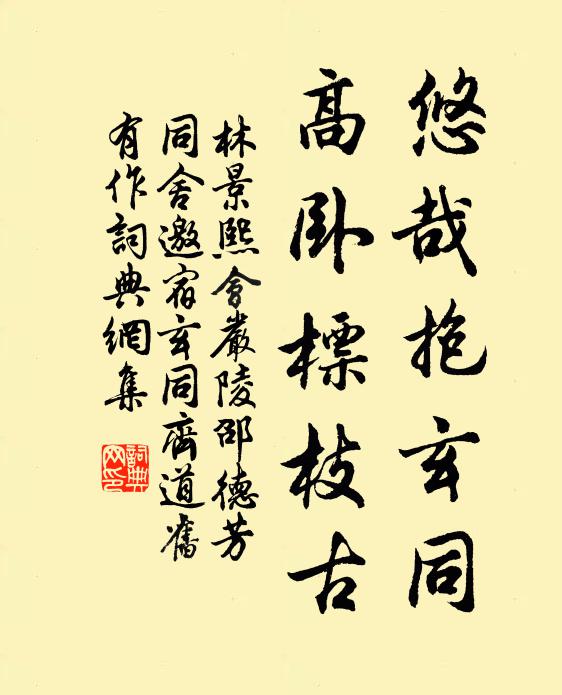 悠哉抱玄同
高卧標枝古
林景熙會嚴陵邵德芳
同舍邀宿玄同齋道舊
有作詞典網集
詞典
网印